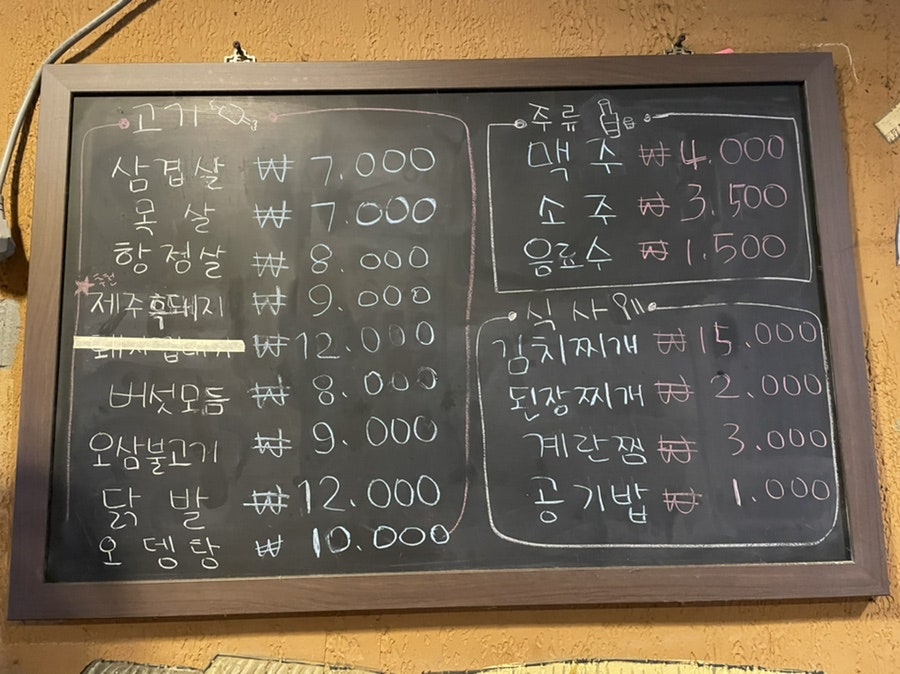 고기
삼겹살 ₩ 7.000
목살 ₩ 7.000
항정살 ₩ 8.000
추천
제주흑돼지 ₩ 9.000
₩ 12.000
버섯모듬 ₩ 8.000
오삼불고기 ₩ 9.000
닭발 ₩ 12.000
오뎅탕 ₩ 10.000
주류
맥주 ₩ 4.000
소주 ₩ 3.500
음료수 ₩ 1.500
식사
김치찌개 ₩ 15.000
된장찌개 ₩ 2.000
계란찜 ₩ 3.000
공기밥 ₩ 1.000